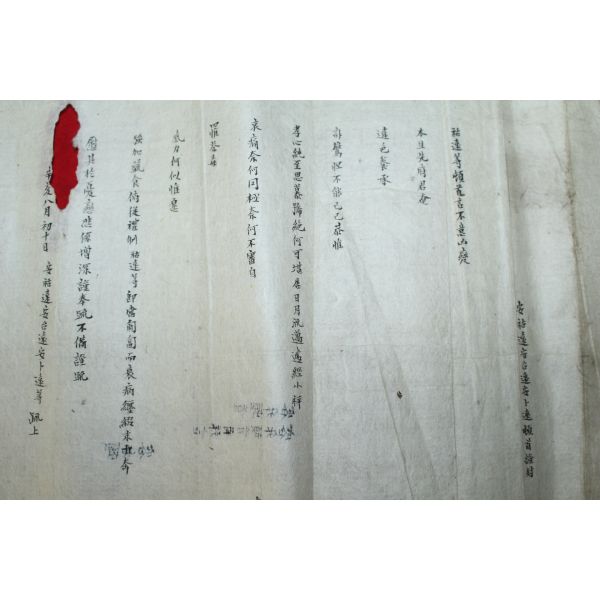 安祐遠安台遠安卜遠頓首謹封
祐遠等頓首言不意凶變
先府君奄
違色養承
訃驚怛不能已已恭惟
孝心純至思慕號絶何可堪居日月流邁遽經小祥
哀痛奈何罔極奈何不審自
罹荼毒
氣力何似惟冀
強加蔬食俯從禮制祐遠等卽當匍匐而衰病纏綿末由奔
慰其於憂戀悲係增深謹奉疏不備謹疏
亥八月初十日 安祐遠安台遠安卜遠等 疏上